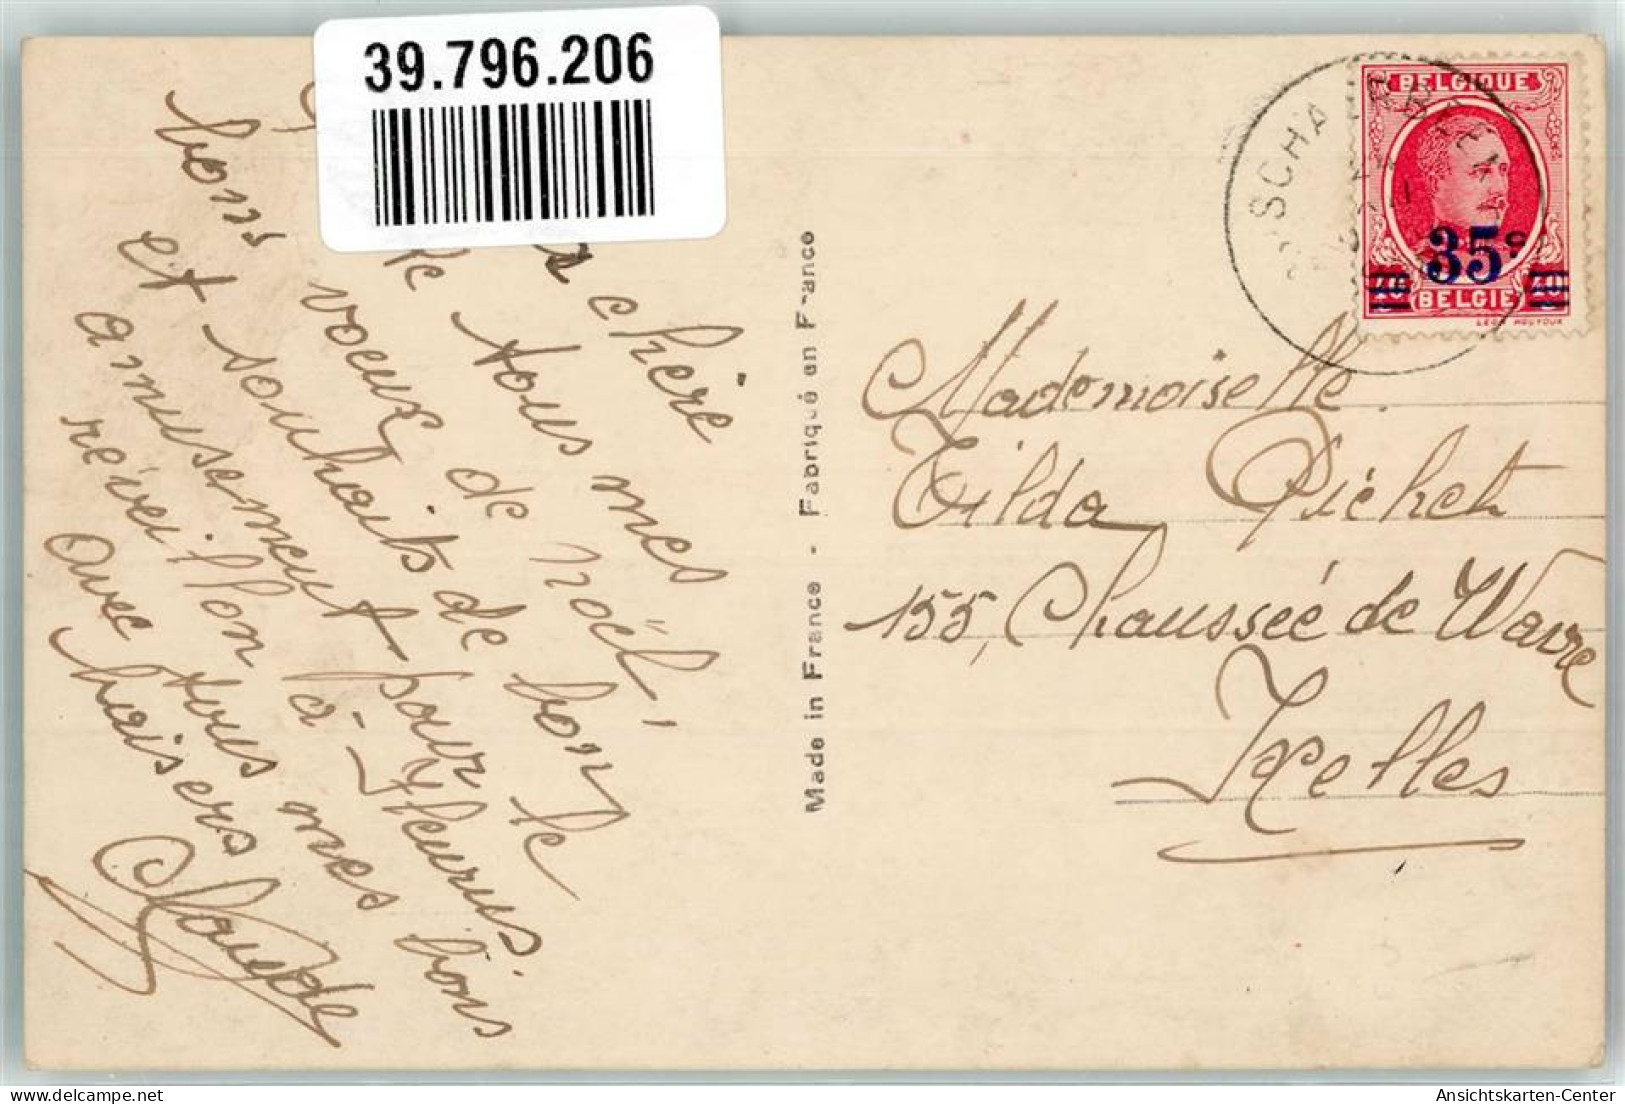 39.796.206
chère
de tous mes
bons voeux de noël,
et souhaits de bon le
amusement pour le
réveillon à - fleurus.
avec tous mes bons
baisers
Claude
Made in France - Fabriqué en France
SCHAARBEEK
BELGIQUE
35c
40 BELGIE 40
Mademoiselle
Tilda Pichet
155, Chaussée de Wavre
Ixelles
Ansichtskarten-Center